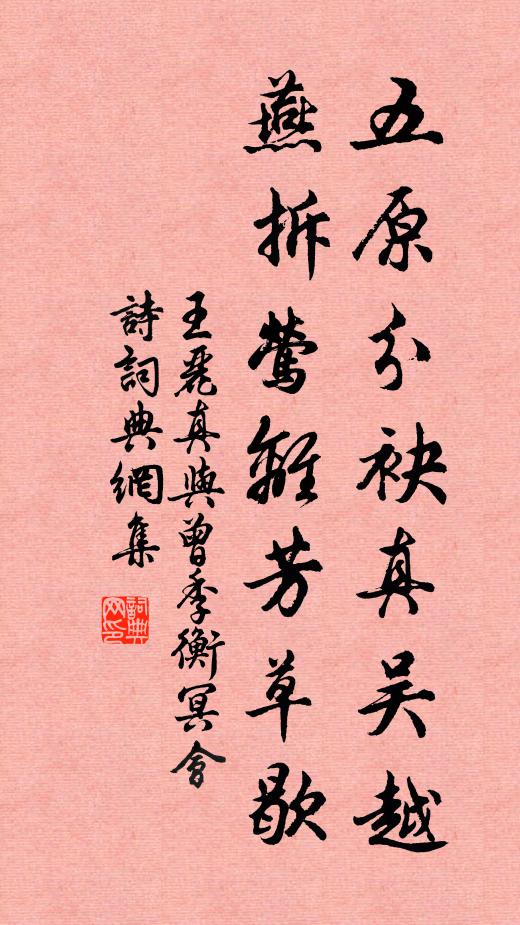 五原分袂真吴越
燕拆莺離芳草歇
王麗真與曾季衡冥會
詩詞典網集
詞典网印